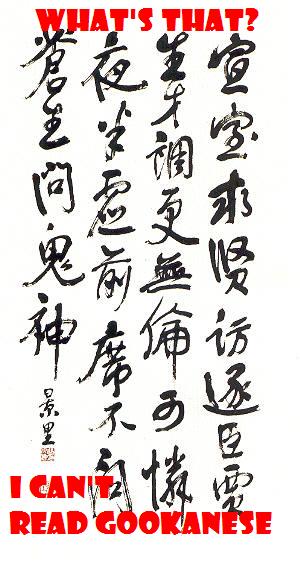 WHAT'S THAT?
宣室求賢訪逐臣賈
生才調更無倫可憐
夜半虛前席不問
蒼生問鬼神
景里
I CAN'T
READ GOOKANESE